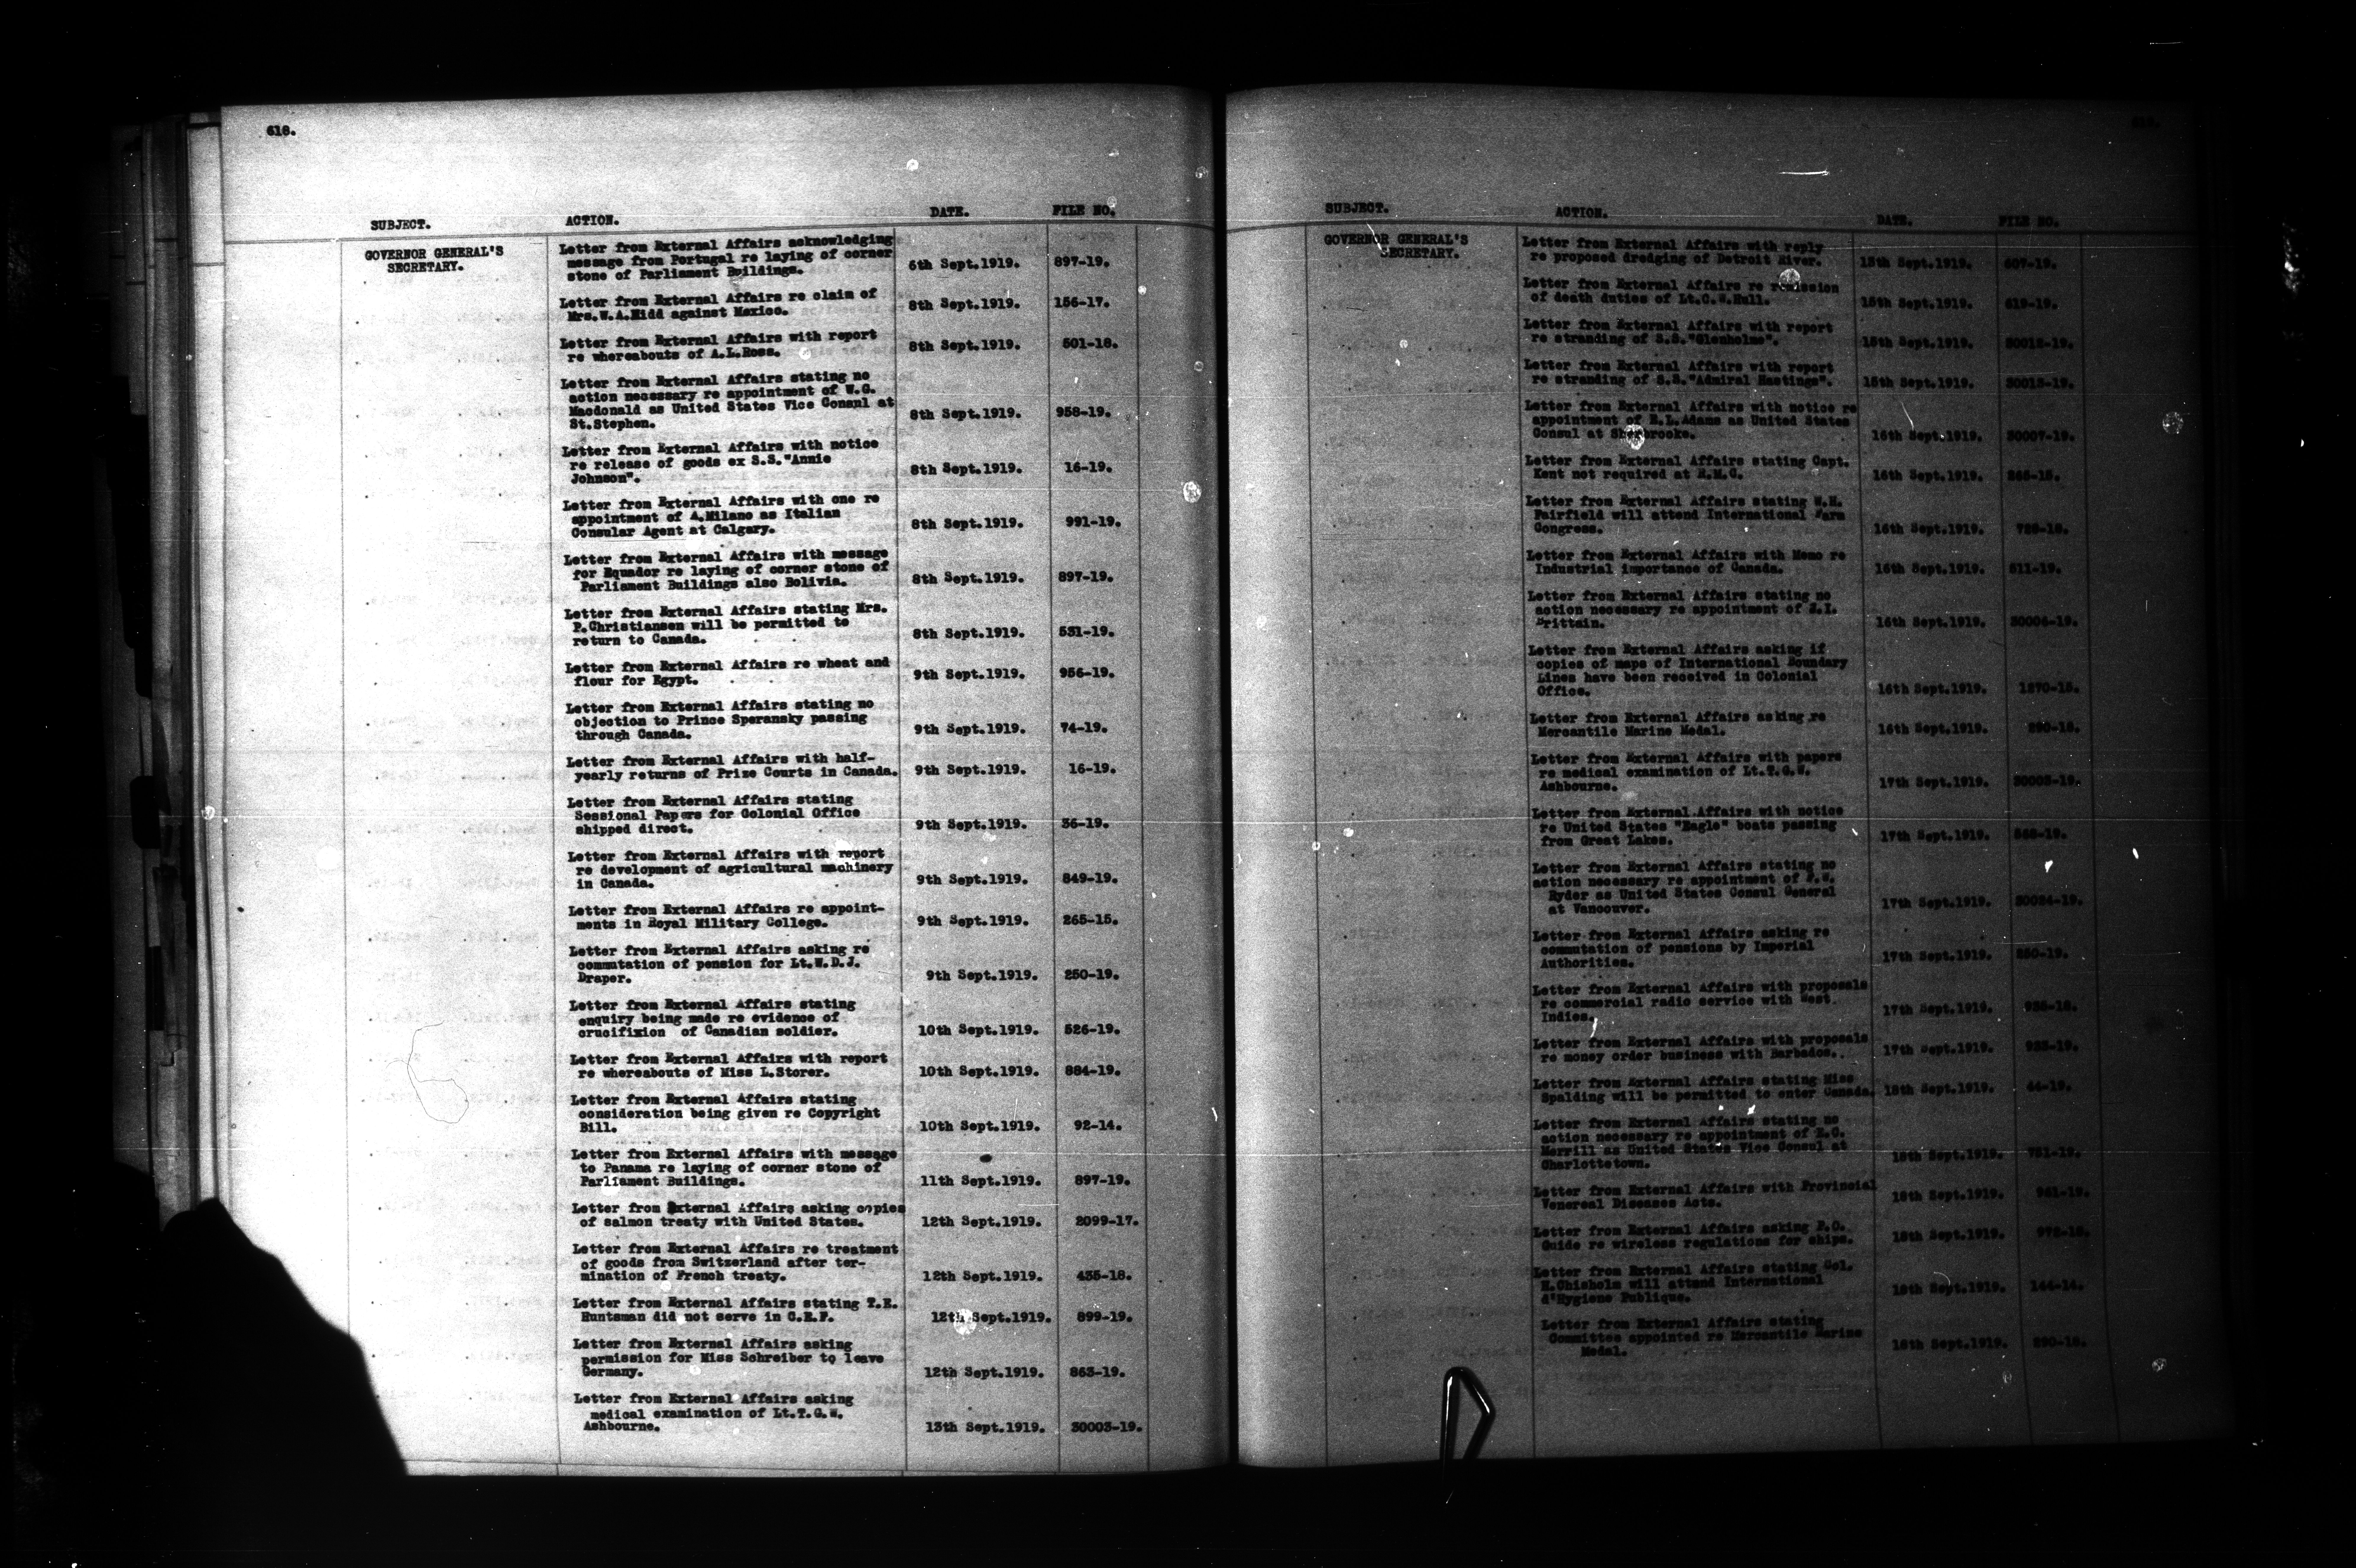 618.
SUBJECT. ACTION. DATE. FILE NO.
GOVERNOR GENERAL'S
SECRETARY.
Letter from External Affairs acknowledging
message from Portugal re laying of corner
stone of Parliament Buildings. 6th Sept.1919. 897-19.
Letter from External Affairs re claim of
Mrs.W.A.Kidd against Mexico. 8th Sept.1919. 156-17.
Letter from External Affairs with report
re whereabouts of A.L.Ross. 8th Sept.1919. 501-18.
Letter from External Affairs stating no
action necessary re appointment of W.G.
Macdonald as United States Vice Consul at
St.Stephen. 8th Sept.1919. 958-19.
Letter from External Affairs with notice
re release of goods ex S.S."Annie
Johnson". 8th Sept.1919. 16-19.
Letter from External Affairs with one re
appointment of A.Milano as Italian
Consular Agent at Calgary. 8th Sept.1919. 991-19.
Letter from External Affairs with message
for Equador re laying of corner stone of
Parliament Buildings also Bolivia. 8th Sept.1919. 897-19.
Letter from External Affairs stating Mrs.
P.Christiansen will be permitted to
return to Canada. 8th Sept.1919. 531-19.
Letter from External Affairs re wheat and
flour for Egypt. 9th Sept.1919. 956-19.
Letter from External Affairs stating no
objection to Prince Speransky passing
through Canada. 9th Sept.1919. 74-19.
Letter from External Affairs with half-
yearly returns of Prize Courts in Canada. 9th Sept.1919. 16-19.
Letter from External Affairs stating
Sessional Papers for Colonial Office
shipped direct. 9th Sept.1919. 36-19.
Letter from External Affairs with report
re development of agricultural machinery
in Canada. 9th Sept.1919. 849-19.
Letter from External Affairs re appoint-
ments in Royal Military College. 9th Sept.1919. 265-15.
Letter from External Affairs asking re
commutation of pension for Lt.W.D.J.
Draper. 9th Sept.1919. 250-19.
Letter from External Affairs stating
enquiry being made re evidence of
crucifixion of Canadian soldier. 10th Sept.1919. 526-19.
Letter from External Affairs with report
re whereabouts of Miss L.Storer. 10th Sept.1919. 884-19.
Letter from External Affairs stating
consideration being given re Copyright
Bill. 10th Sept.1919. 92-14.
Letter from External Affairs with message
to Panama re laying of corner stone of
Parliament Buildings. 11th Sept.1919. 897-19.
Letter from External Affairs asking copies
of salmon treaty with United States. 12th Sept.1919. 2099-17.
Letter from External Affairs re treatment
of goods from Switzerland after ter-
mination of French treaty. 12th Sept.1919. 435-18.
Letter from External Affairs stating T.E.
Huntsman did not serve in C.E.F. 12th Sept.1919. 899-19.
Letter from External Affairs asking
permission for Miss Schreiber to leave
Germany. 12th Sept.1919. 863-19.
Letter from External Affairs asking
medical examination of Lt.T.G.W.
Ashbourne. 13th Sept.1919. 30003-19.
SUBJECT. ACTION. DATE. FILE NO.
GOVERNOR GENERAL'S
SECRETARY.
Letter from External Affairs with reply
re proposed dredging of Detroit River. Sept.1919. 607-19.
Letter from External Affairs re remission
of death duties of Lt.C.W.Hull. 15th Sept.1919. 619-19.
Letter from External Affairs with report
re stranding of S.S."Glenholme". 15th Sept.1919. 30012-19.
Letter from External Affairs with report
re stranding of S.S."Admiral Hastings". 15th Sept.1919. 30013-19.
Letter from External Affairs with notice re
appointment of E.L.Adams as United States
Consul at Sherbrooke. 16th Sept.1919. 30007-19.
Letter from External Affairs stating Capt.
Kent not required at R.M.C. 16th Sept.1919. 265-15.
Letter from External Affairs stating W.H.
Fairfield will attend International Farm
Congress. 16th Sept.1919.
Letter from External Affairs with Memo re
Industrial importance of Canada. 16th Sept.1919. 511-19.
Letter from External Affairs stating no
action necessary re appointment of J.I.
Brittain. 16th Sept.1919. 30006-19.
Letter from External Affairs asking if
copies of maps of International Boundary
Lines have been received in Colonial
Office. 16th Sept.1919. 1570-15.
Letter from External Affairs asking re
Mercantile Marine Medal. 16th Sept.1919. 290-18.
Letter from External Affairs with papers
re medical examination of Lt.T.G.W.
Ashbourne. 17th Sept.1919. 30003-19.
Letter from External Affairs with notice
re United States "Eagle" boats passing
from Great Lakes. 17th Sept.1919.
Letter from External Affairs stating no
action necessary re appointment of F.W.
Ryder as United States Consul General
at Vancouver. 17th Sept.1919. 30024-19.
Letter from External Affairs asking re
commutation of pensions by Imperial
Authorities. 17th Sept.1919. 250-19.
Letter from External Affairs with proposals
re commercial radio service with West
Indies. 17th Sept.1919.
Letter from External Affairs with proposals
re money order business with Barbados. 17th Sept.1919. 933-19.
Letter from External Affairs stating Miss
Spalding will be permitted to enter Canada. 18th Sept.1919. 44-19.
Letter from External Affairs stating no
action necessary re appointment of
Merrill as United States Vice Consul at
Charlottetown. 18th Sept.1919. 751-19.
Letter from External Affairs with Provincial
Venereal Diseases Acts. 18th Sept.1919. 961-19.
Letter from External Affairs asking P.O.
Guide re wireless regulations for ships. 18th Sept.1919.
Letter from External Affairs stating Col.
H.Chisholm will attend International
d'Hygiene Publique. 18th Sept.1919. 144-14.
Letter from External Affairs stating
Committee appointed re Mercantile Marine
Medal. 18th Sept.1919. 290-18.